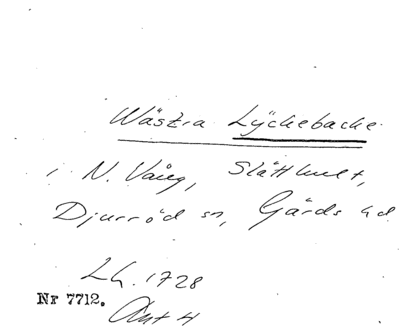 Wästra Lyckebacke
i N. Vång, Slätthult,
Djurröd sn, Gärds hd
Lh. 1728
Nr 7712.
Akt 4